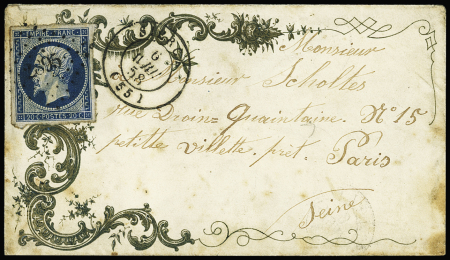 EMPIRE FRANC
20C POSTES 20C
6
(55)
Monsieur
Monsieur Scholtès
rue Droin-Quaintaine. N° 15
petite villette, prêt. Paris
Seine